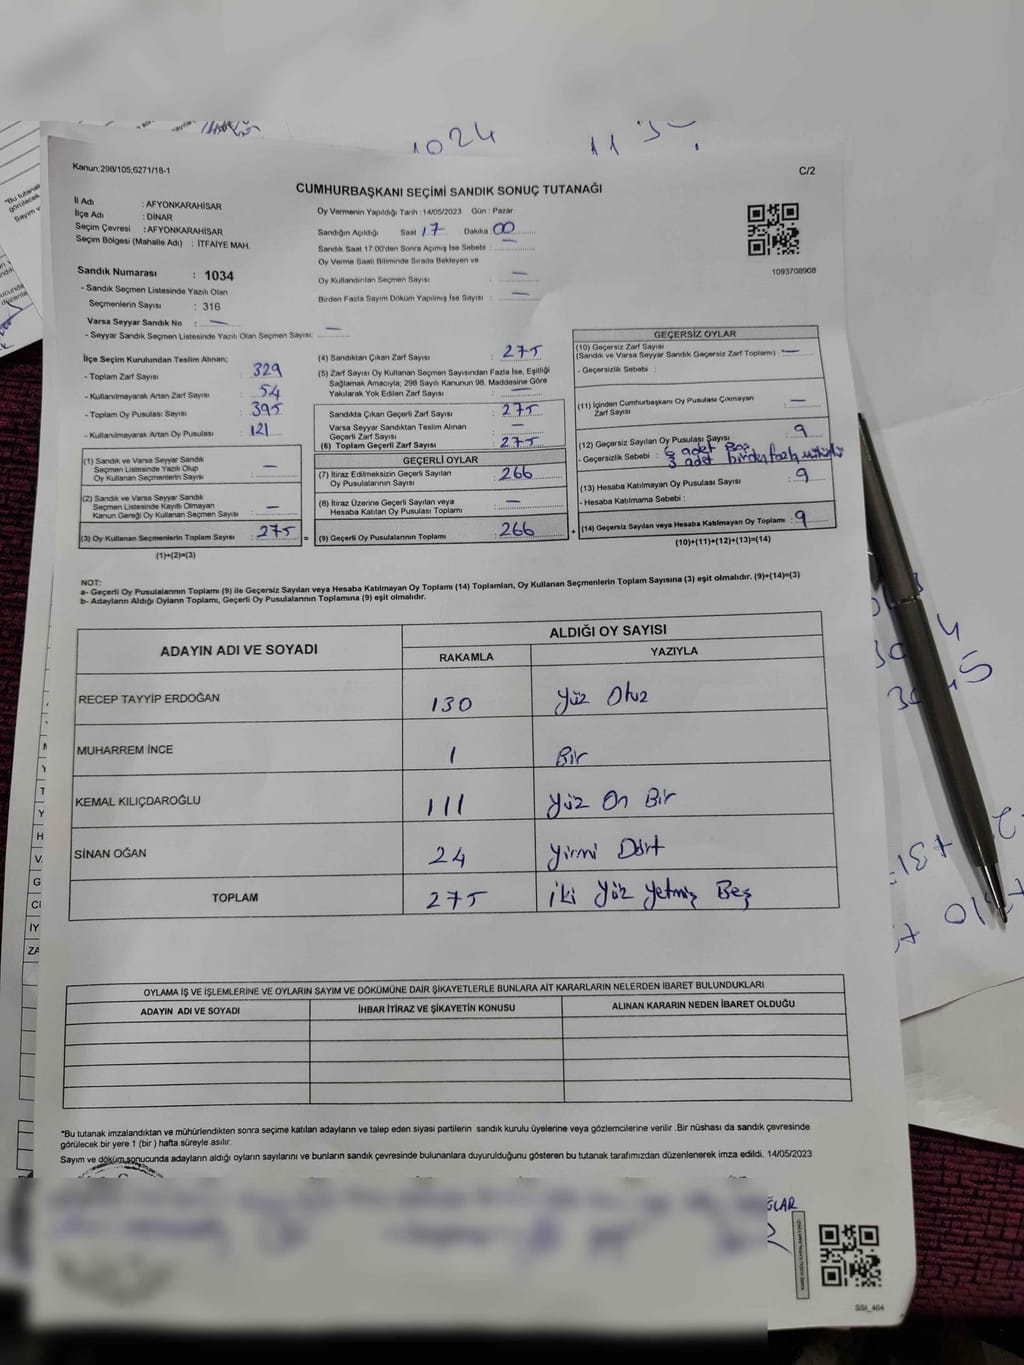 1024
Kanun;298/105,6271/18-1
C/2
CUMHURBAŞKANI SEÇİMİ SANDIK SONUÇ TUTANAĞI
İl Adı : AFYONKARAHİSAR
İlçe Adı : DİNAR
Seçim Çevresi : AFYONKARAHİSAR
Seçim Bölgesi (Mahalle Adı) : İTFAİYE MAH.
Sandık Numarası : 1034
- Sandık Seçmen Listesinde Yazılı Olan
Seçmenlerin Sayısı : 316
Varsa Seyyar Sandık No : —
- Seyyar Sandık Seçmen Listesinde Yazılı Olan Seçmen Sayısı: —
Oy Vermenin Yapıldığı Tarih :14/05/2023 Gün : Pazar
Sandığın Açıldığı Saat 17 Dakika 00
Sandık Saat 17:00'den Sonra Açılmış İse Sebebi : —
Oy Verme Saati Bitiminde Sırada Bekleyen ve
Oy Kullandırılan Seçmen Sayısı : —
Birden Fazla Sayım Döküm Yapılmış İse Sayısı : —
1093708908
İlçe Seçim Kurulundan Teslim Alınan;
- Toplam Zarf Sayısı : 329
- Kullanılmayarak Artan Zarf Sayısı : 54
- Toplam Oy Pusulası Sayısı : 395
- Kullanılmayarak Artan Oy Pusulası : 121
(1) Sandık ve Varsa Seyyar Sandık
Seçmen Listesinde Yazılı Olup
Oy Kullanan Seçmenlerin Sayısı : —
(2) Sandık ve Varsa Seyyar Sandık
Seçmen Listesinde Kayıtlı Olmayan
Kanun Gereği Oy Kullanan Seçmen Sayısı : —
(3) Oy Kullanan Seçmenlerin Toplam Sayısı : 275
(1)+(2)=(3)
(4) Sandıktan Çıkan Zarf Sayısı : 275
(5) Zarf Sayısı Oy Kullanan Seçmen Sayısından Fazla İse, Eşitliği
Sağlamak Amacıyla; 298 Sayılı Kanunun 98. Maddesine Göre
Yakılarak Yok Edilen Zarf Sayısı : —
Sandıkta Çıkan Geçerli Zarf Sayısı : 275
Varsa Seyyar Sandıktan Teslim Alınan
Geçerli Zarf Sayısı : —
(6) Toplam Geçerli Zarf Sayısı : 275
GEÇERLİ OYLAR
(7) İtiraz Edilmeksizin Geçerli Sayılan
Oy Pusulalarının Sayısı : 266
(8) İtiraz Üzerine Geçerli Sayılan veya
Hesaba Katılan Oy Pusulası Toplamı : —
= (9) Geçerli Oy Pusulalarının Toplamı : 266
GEÇERSİZ OYLAR
(10) Geçersiz Zarf Sayısı
(Sandık ve Varsa Seyyar Sandık Geçersiz Zarf Toplamı) : —
- Geçersizlik Sebebi :
(11) İçinden Cumhurbaşkanı Oy Pusulası Çıkmayan
Zarf Sayısı : —
(12) Geçersiz Sayılan Oy Pusulası Sayısı : 9
- Geçersizlik Sebebi : 6 adet Boş
3 adet birden fazla mühürlü
(13) Hesaba Katılmayan Oy Pusulası Sayısı : 9
- Hesaba Katılmama Sebebi :
+ (14) Geçersiz Sayılan veya Hesaba Katılmayan Oy Toplamı : 9
(10)+(11)+(12)+(13)=(14)
NOT:
a- Geçerli Oy Pusulalarının Toplamı (9) ile Geçersiz Sayılan veya Hesaba Katılmayan Oy Toplamı (14) Toplamları, Oy Kullanan Seçmenlerin Toplam Sayısına (3) eşit olmalıdır. (9)+(14)=(3)
b- Adayların Aldığı Oyların Toplamı, Geçerli Oy Pusulalarının Toplamına (9) eşit olmalıdır.
ADAYIN ADI VE SOYADI
ALDIĞI OY SAYISI
RAKAMLA YAZIYLA
RECEP TAYYİP ERDOĞAN 130 Yüz Otuz
MUHARREM İNCE 1 Bir
KEMAL KILIÇDAROĞLU 111 Yüz On Bir
SİNAN OĞAN 24 Yirmi Dört
TOPLAM 275 İki Yüz Yetmiş Beş
OYLAMA İŞ VE İŞLEMLERİNE VE OYLARIN SAYIM VE DÖKÜMÜNE DAİR ŞİKAYETLERLE BUNLARA AİT KARARLARIN NELERDEN İBARET BULUNDUKLARI
ADAYIN ADI VE SOYADI İHBAR İTİRAZ VE ŞİKAYETİN KONUSU ALINAN KARARIN NEDEN İBARET OLDUĞU
*Bu tutanak imzalandıktan ve mühürlendikten sonra seçime katılan adayların ve talep eden siyasi partilerin sandık kurulu üyelerine veya gözlemcilerine verilir .Bir nüshası da sandık çevresinde
görülecek bir yere 1 (bir ) hafta süreyle asılır.
Sayım ve döküm sonucunda adayların aldığı oyların sayılarını ve bunların sandık çevresinde bulunanlara duyurulduğunu gösteren bu tutanak tarafımızdan düzenlenerek imza edildi. 14/05/2023
SSI_404